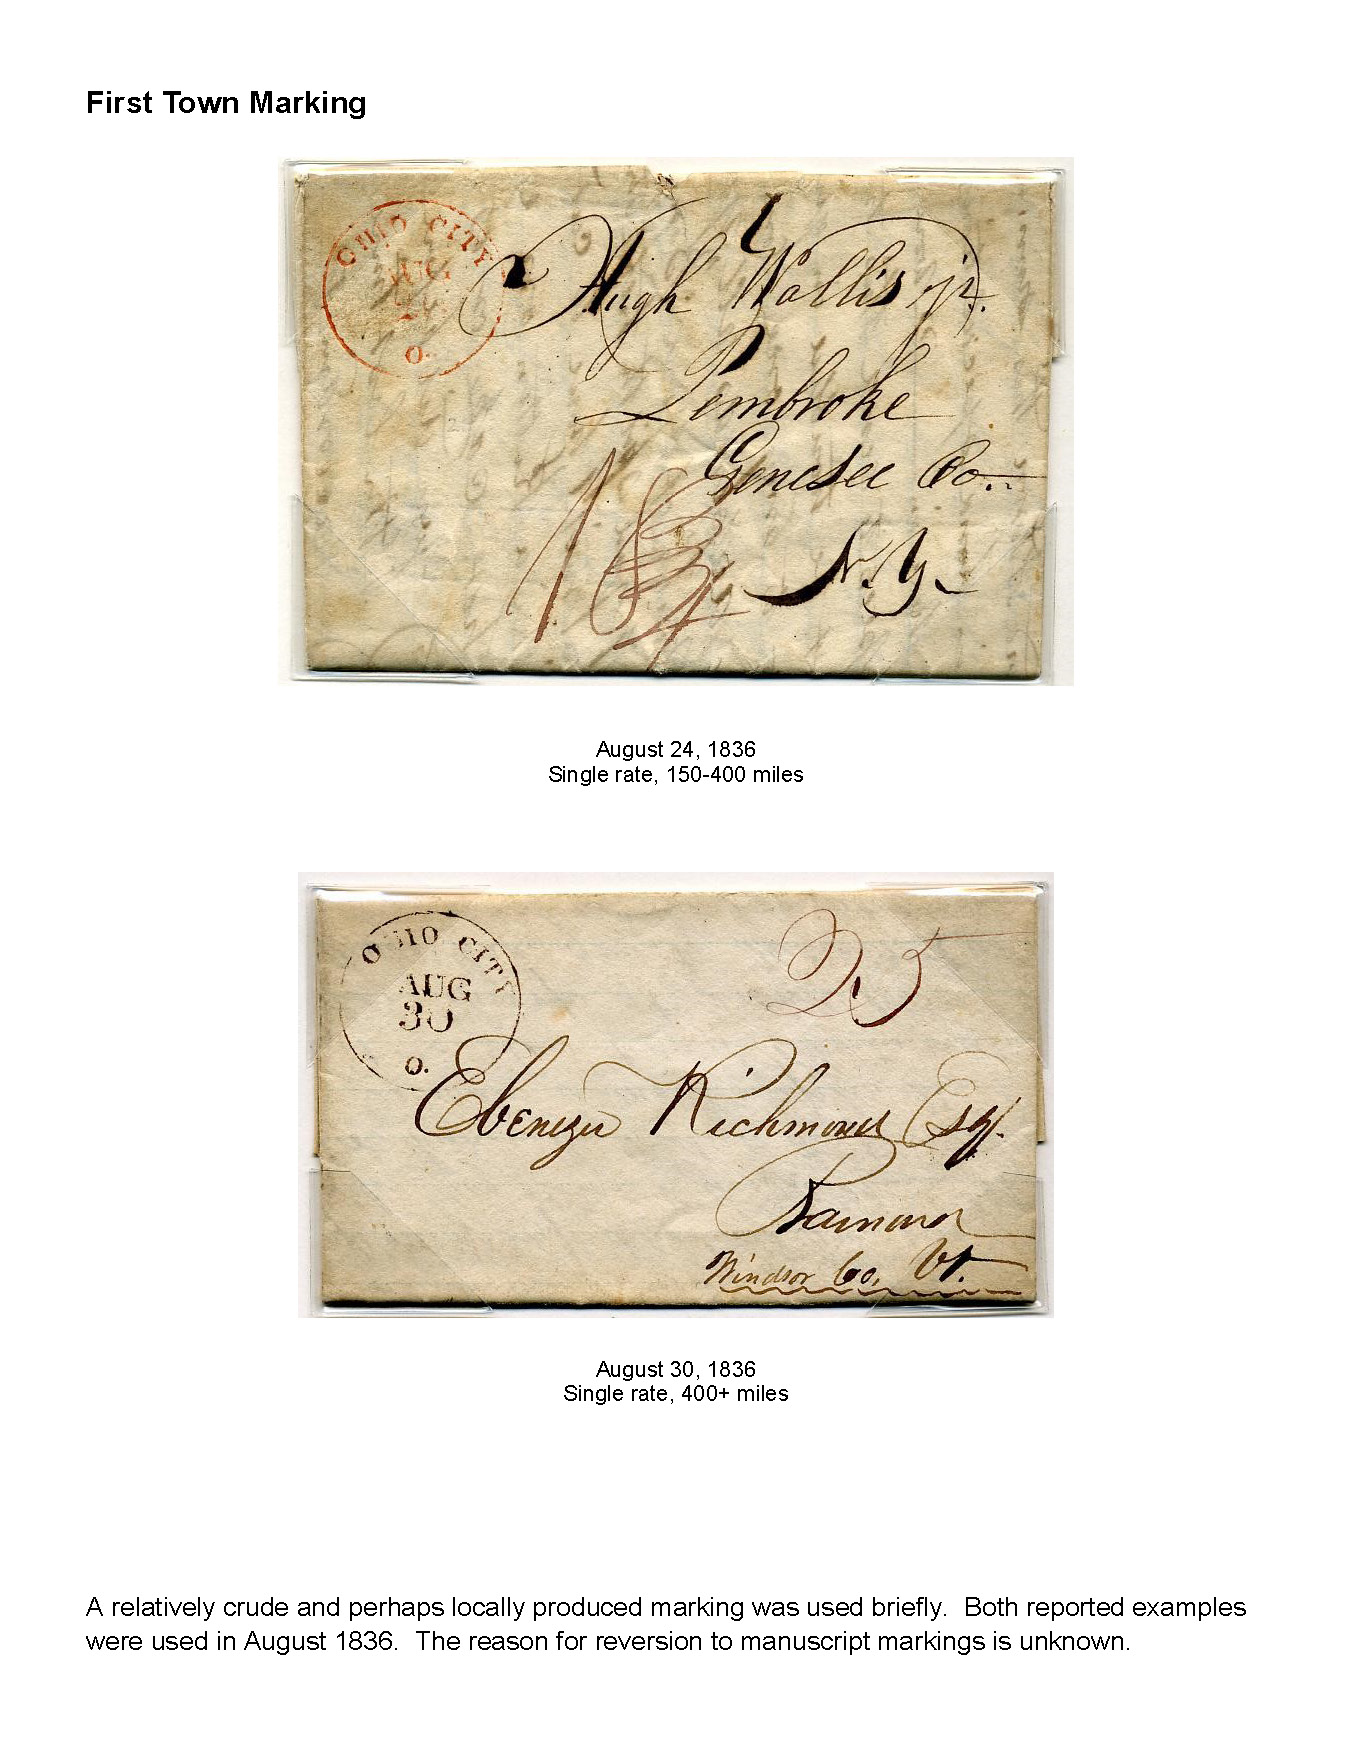 First Town Marking
OHIO CITY
AUG
O.
Hugh Wallis jr.
Pembroke
Genesee Co.
N.Y.
18 3/4
August 24, 1836
Single rate, 150-400 miles
OHIO CITY
AUG
30
O.
25
Ebenezer Richmond Esq.
Windsor Co. Vt.
August 30, 1836
Single rate, 400+ miles
A relatively crude and perhaps locally produced marking was used briefly.  Both reported examples
were used in August 1836.  The reason for reversion to manuscript markings is unknown.